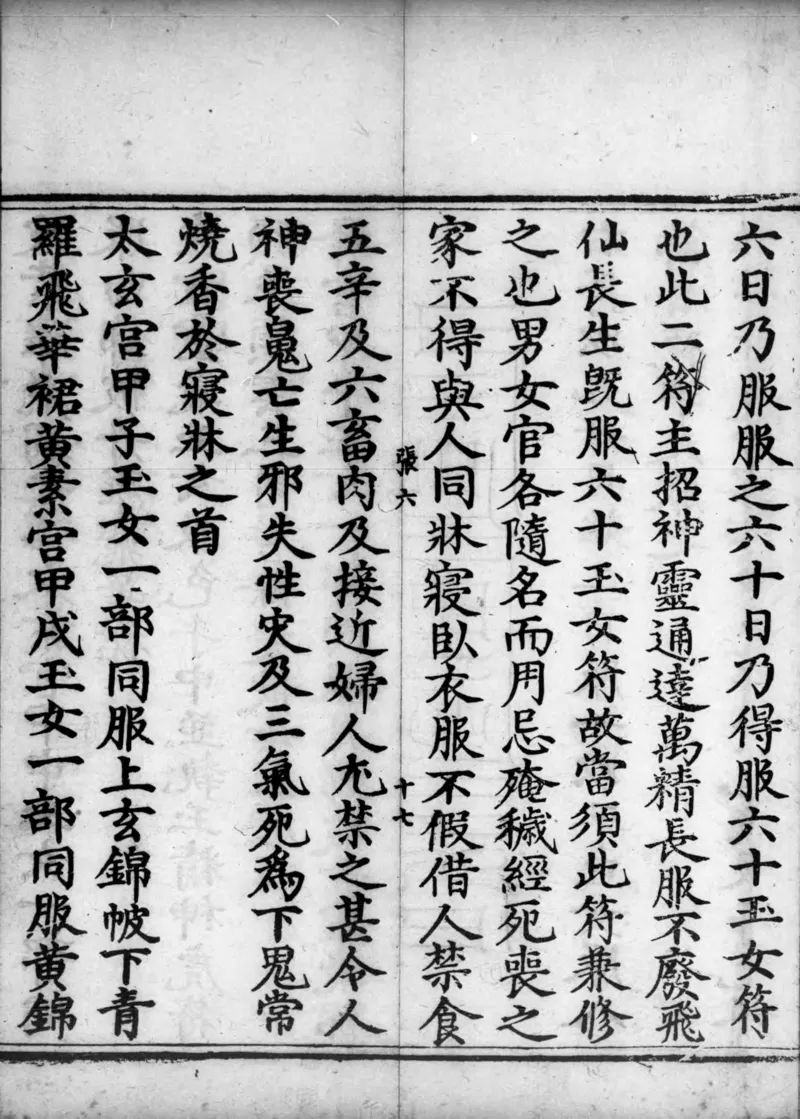 六日乃服服之六十日乃得服六十玉女符
也此二符主招神靈通達萬精長服不廢飛
仙長生旣服六十玉女符故當須此符兼修
之也男女官各隨名而用忌殗穢經死喪之
家不得與人同牀寢臥衣服不假借人禁食
張六
十七
五辛及六畜肉及接近婦人尤禁之甚令人
神喪鬼亡生邪失性灾及三氣死爲下鬼常
燒香於寢牀之首
太玄宫甲子玉女一部同服上玄錦帔下青
羅飛華裙黄素宫甲戌玉女一部同服黄錦